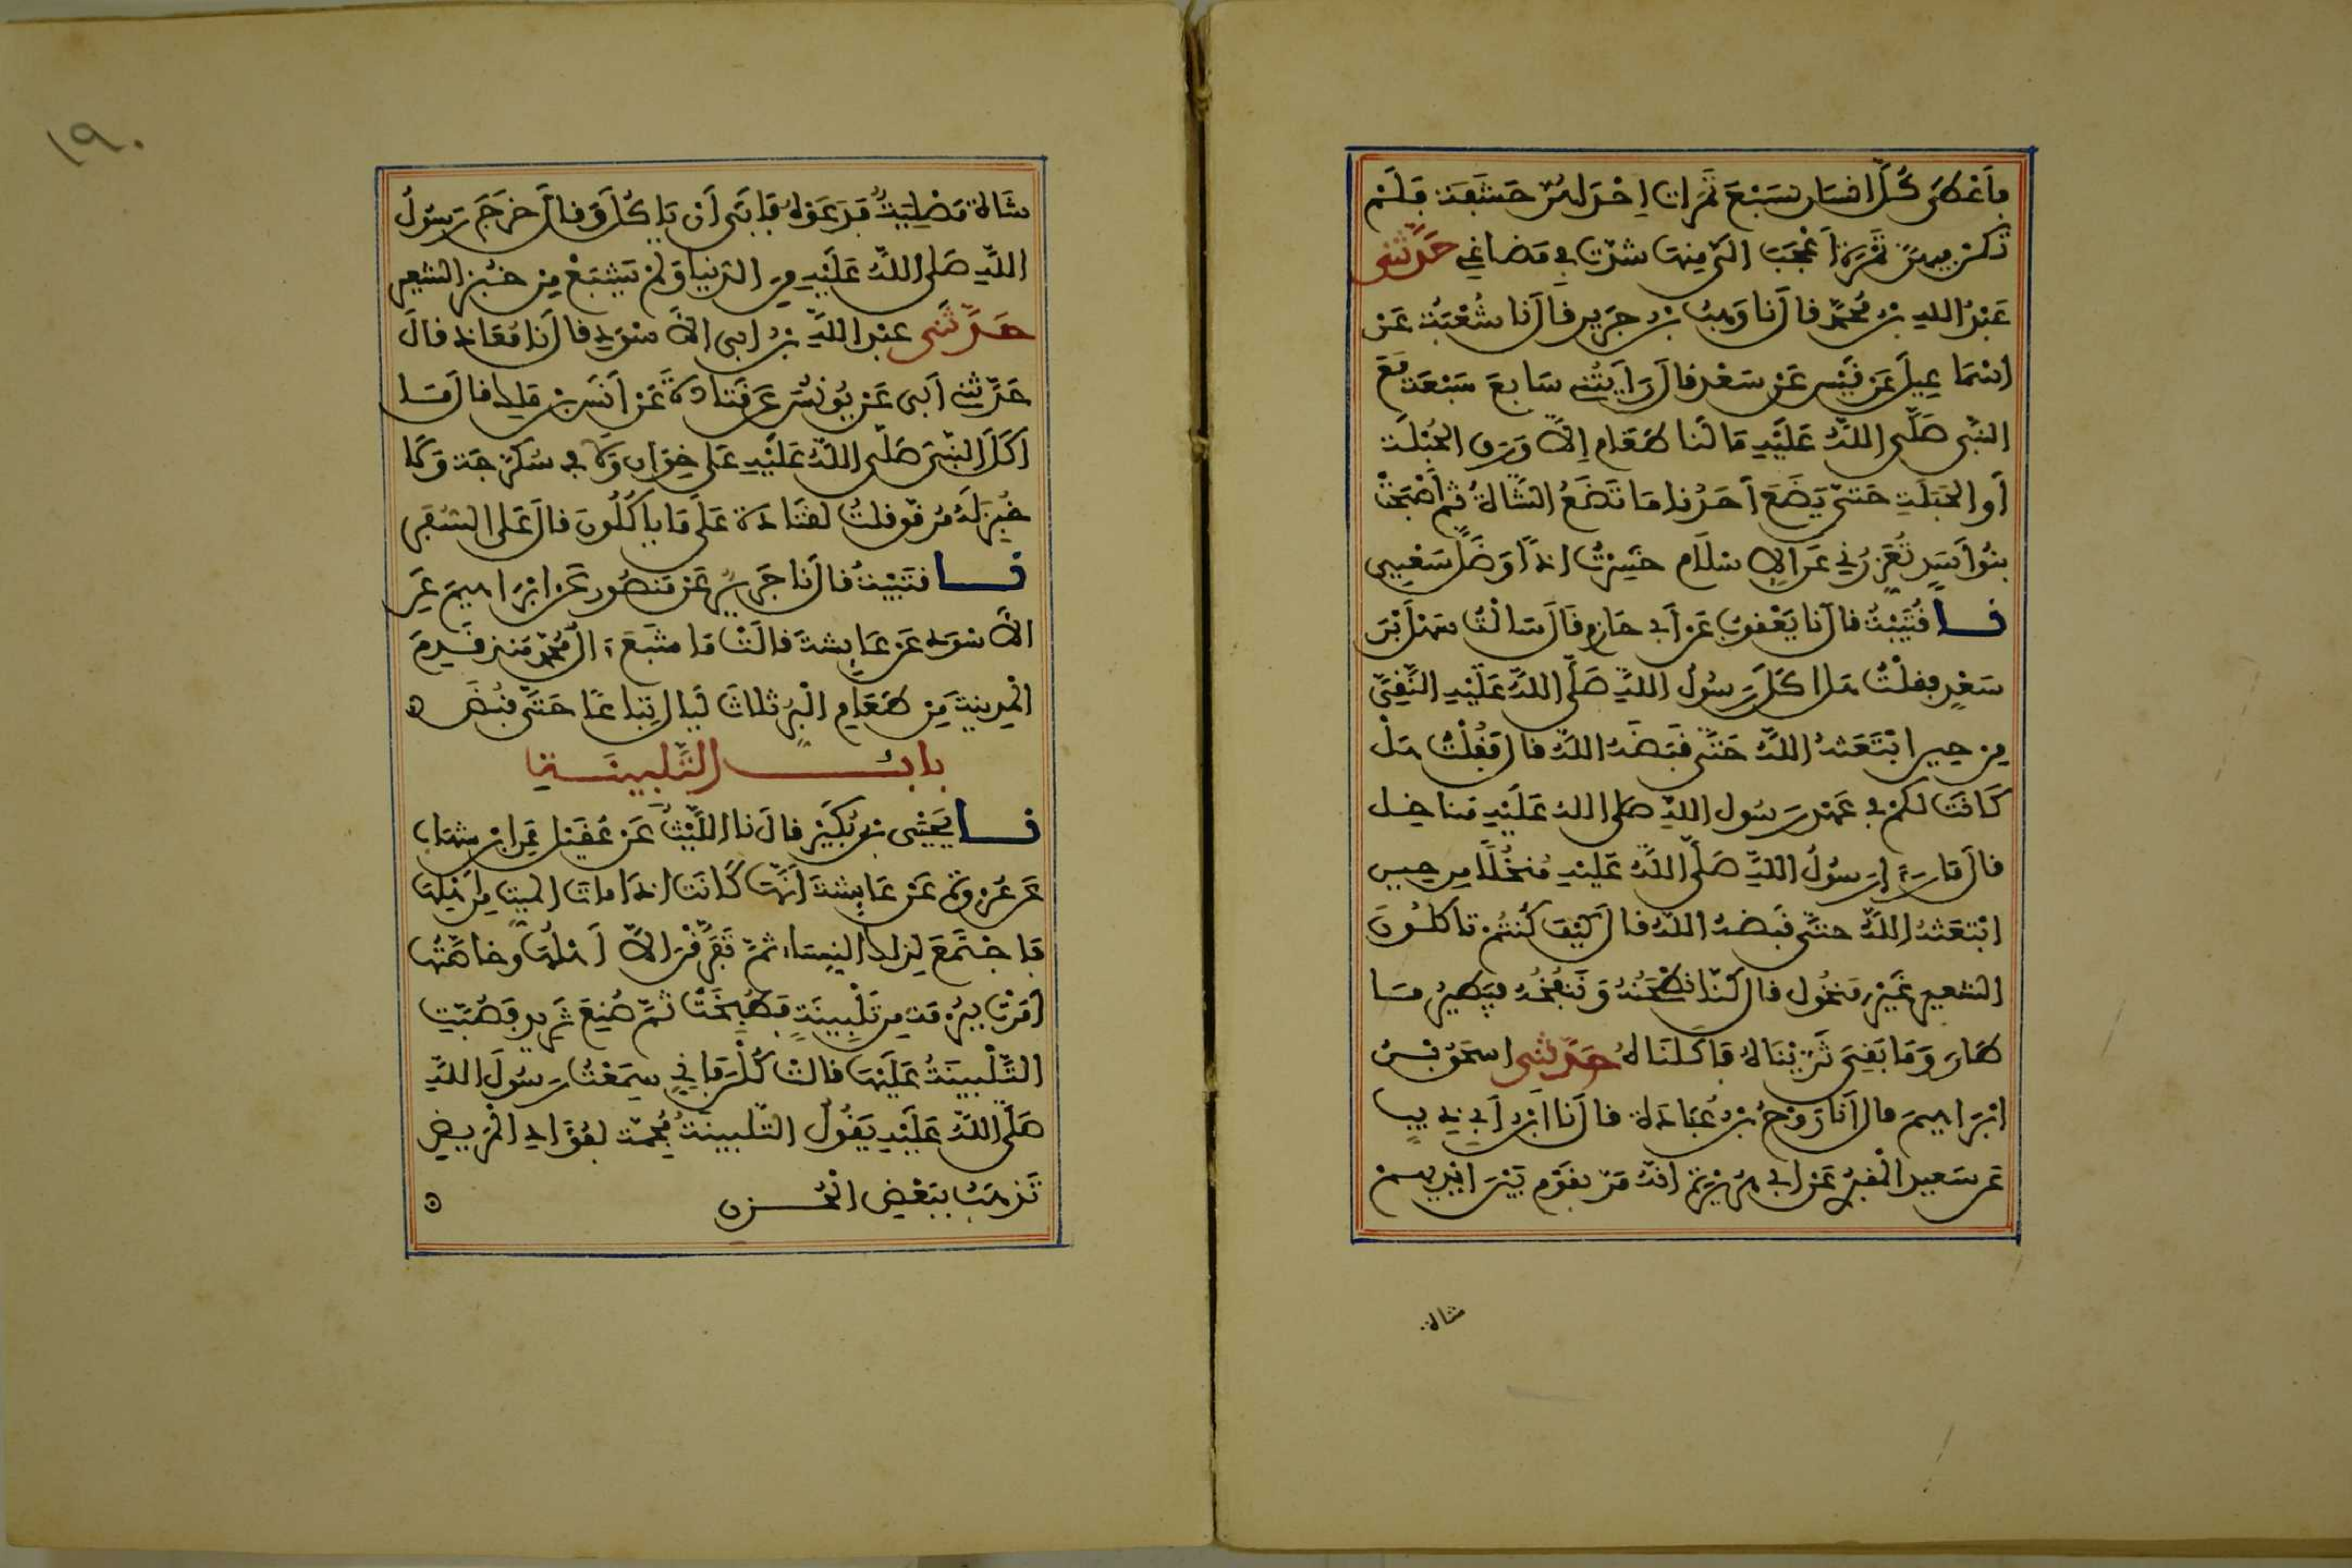 فأعطى كل انسان سبع تمرات إحداهن حشفة فلم
تكن فيهن تمرة أعجب الي منها شدت في مضاغي حدثني
عبد الله بن محمد قال نا وهب بن جرير قال نا شعبة عن
اسماعيل عن قيس عن سعد قال رأيتني سابع سبعة مع
النبي صلى الله عليه ما لنا طعام إلا ورق الحبلة
أو الحبلة حتى يضع أحدنا ما تضع الشاة ثم أصبحت
بنوا أسد تعزرني على الإسلام خسرت اذا وضل سعيي
نا قتيبة قال نا يعقوب عن أبي حازم قال سالت سهل بن
سعد فقلت هل اكل رسول الله صلى الله عليه النقي
من حين ابتعثه الله حتى قبضه الله قال فقلت هل
كانت لكم في عهد رسول الله صلى الله عليه مناخل
قال ما رءا رسول الله صلى الله عليه منخلا من حين
ابتعثه الله حتى قبضه الله قال كيف كنتم تاكلون
الشعير غير منخول قال كنا نطحنه وننفخه فيطير ما
طار وما بقي ثريناه فأكلناه حدثني اسحق بن
ابراهيم قال أنا روح بن عبادة قال نا ابن أبي ذيب
عن سعيد المقبري عن ابي هريرة انه مر بقوم بين ايديهم
شاة
١٩٠
شاة مصلية فدعوه فأبى أن يأكل وقال خرج رسول
الله صلى الله عليه من الدنيا ولم يشبع من خبز الشعير
حدثنى عبد الله بن ابى الاسود قال نا معاذ قال
حدثني أبى عن يونس عن قتادة عن أنس بن ملك قال ما
اكل النبي صلى الله عليه على خوان ولا في سكرجة ولا
خبز له مرقق قلت لقتادة على ما ياكلون قال على السفر
نا قتيبة قال نا جرير عن منصور عن ابراهيم عن
الأسود عن عايشة قالت ما شبع ءال محمد منذ قدم
المدينة من طعام البر ثلاث ليال تباعا حتى قبض
باب التلبينة
نا يحيى بن بكير قال نا الليث عن عقيل عن ابن شهاب
عن عروة عن عايشة أنها كانت اذا مات الميت من أهلها
فاجتمع لذلك النساء ثم تفرقن الا أهلها وخاصتها
أمرت ببرمة من تلبينة فطبخت ثم صنع ثريد فصبت
التلبينة عليها قالت كلن فإني سمعت رسول الله
صلى الله عليه يقول التلبينة مجمة لفؤاد المريض
تذهب ببعض الحزن